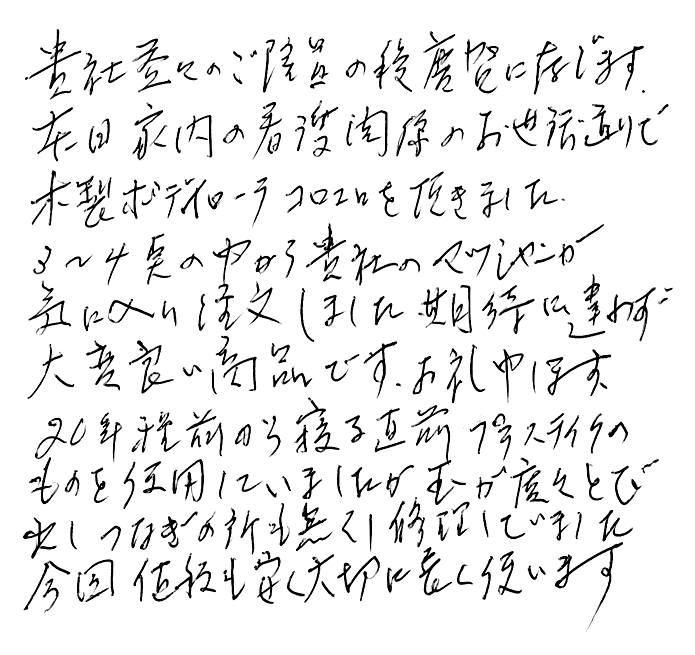 貴社益々のご隆昌の段慶賀に存じます.
本日家内の看護関係のお世話通りで
木製ボディローラコロコロを頂きました.
3～4点の中から貴社のマッシャンが
気に入り注文しました 期待に違わず
大変良い商品です.お礼申します
20年程前から寝る直前プラスティクの
ものを使用していましたが 玉が度々とび
出しつなぎの所も無くし修理していました
今回値段も安く大切に長く使います